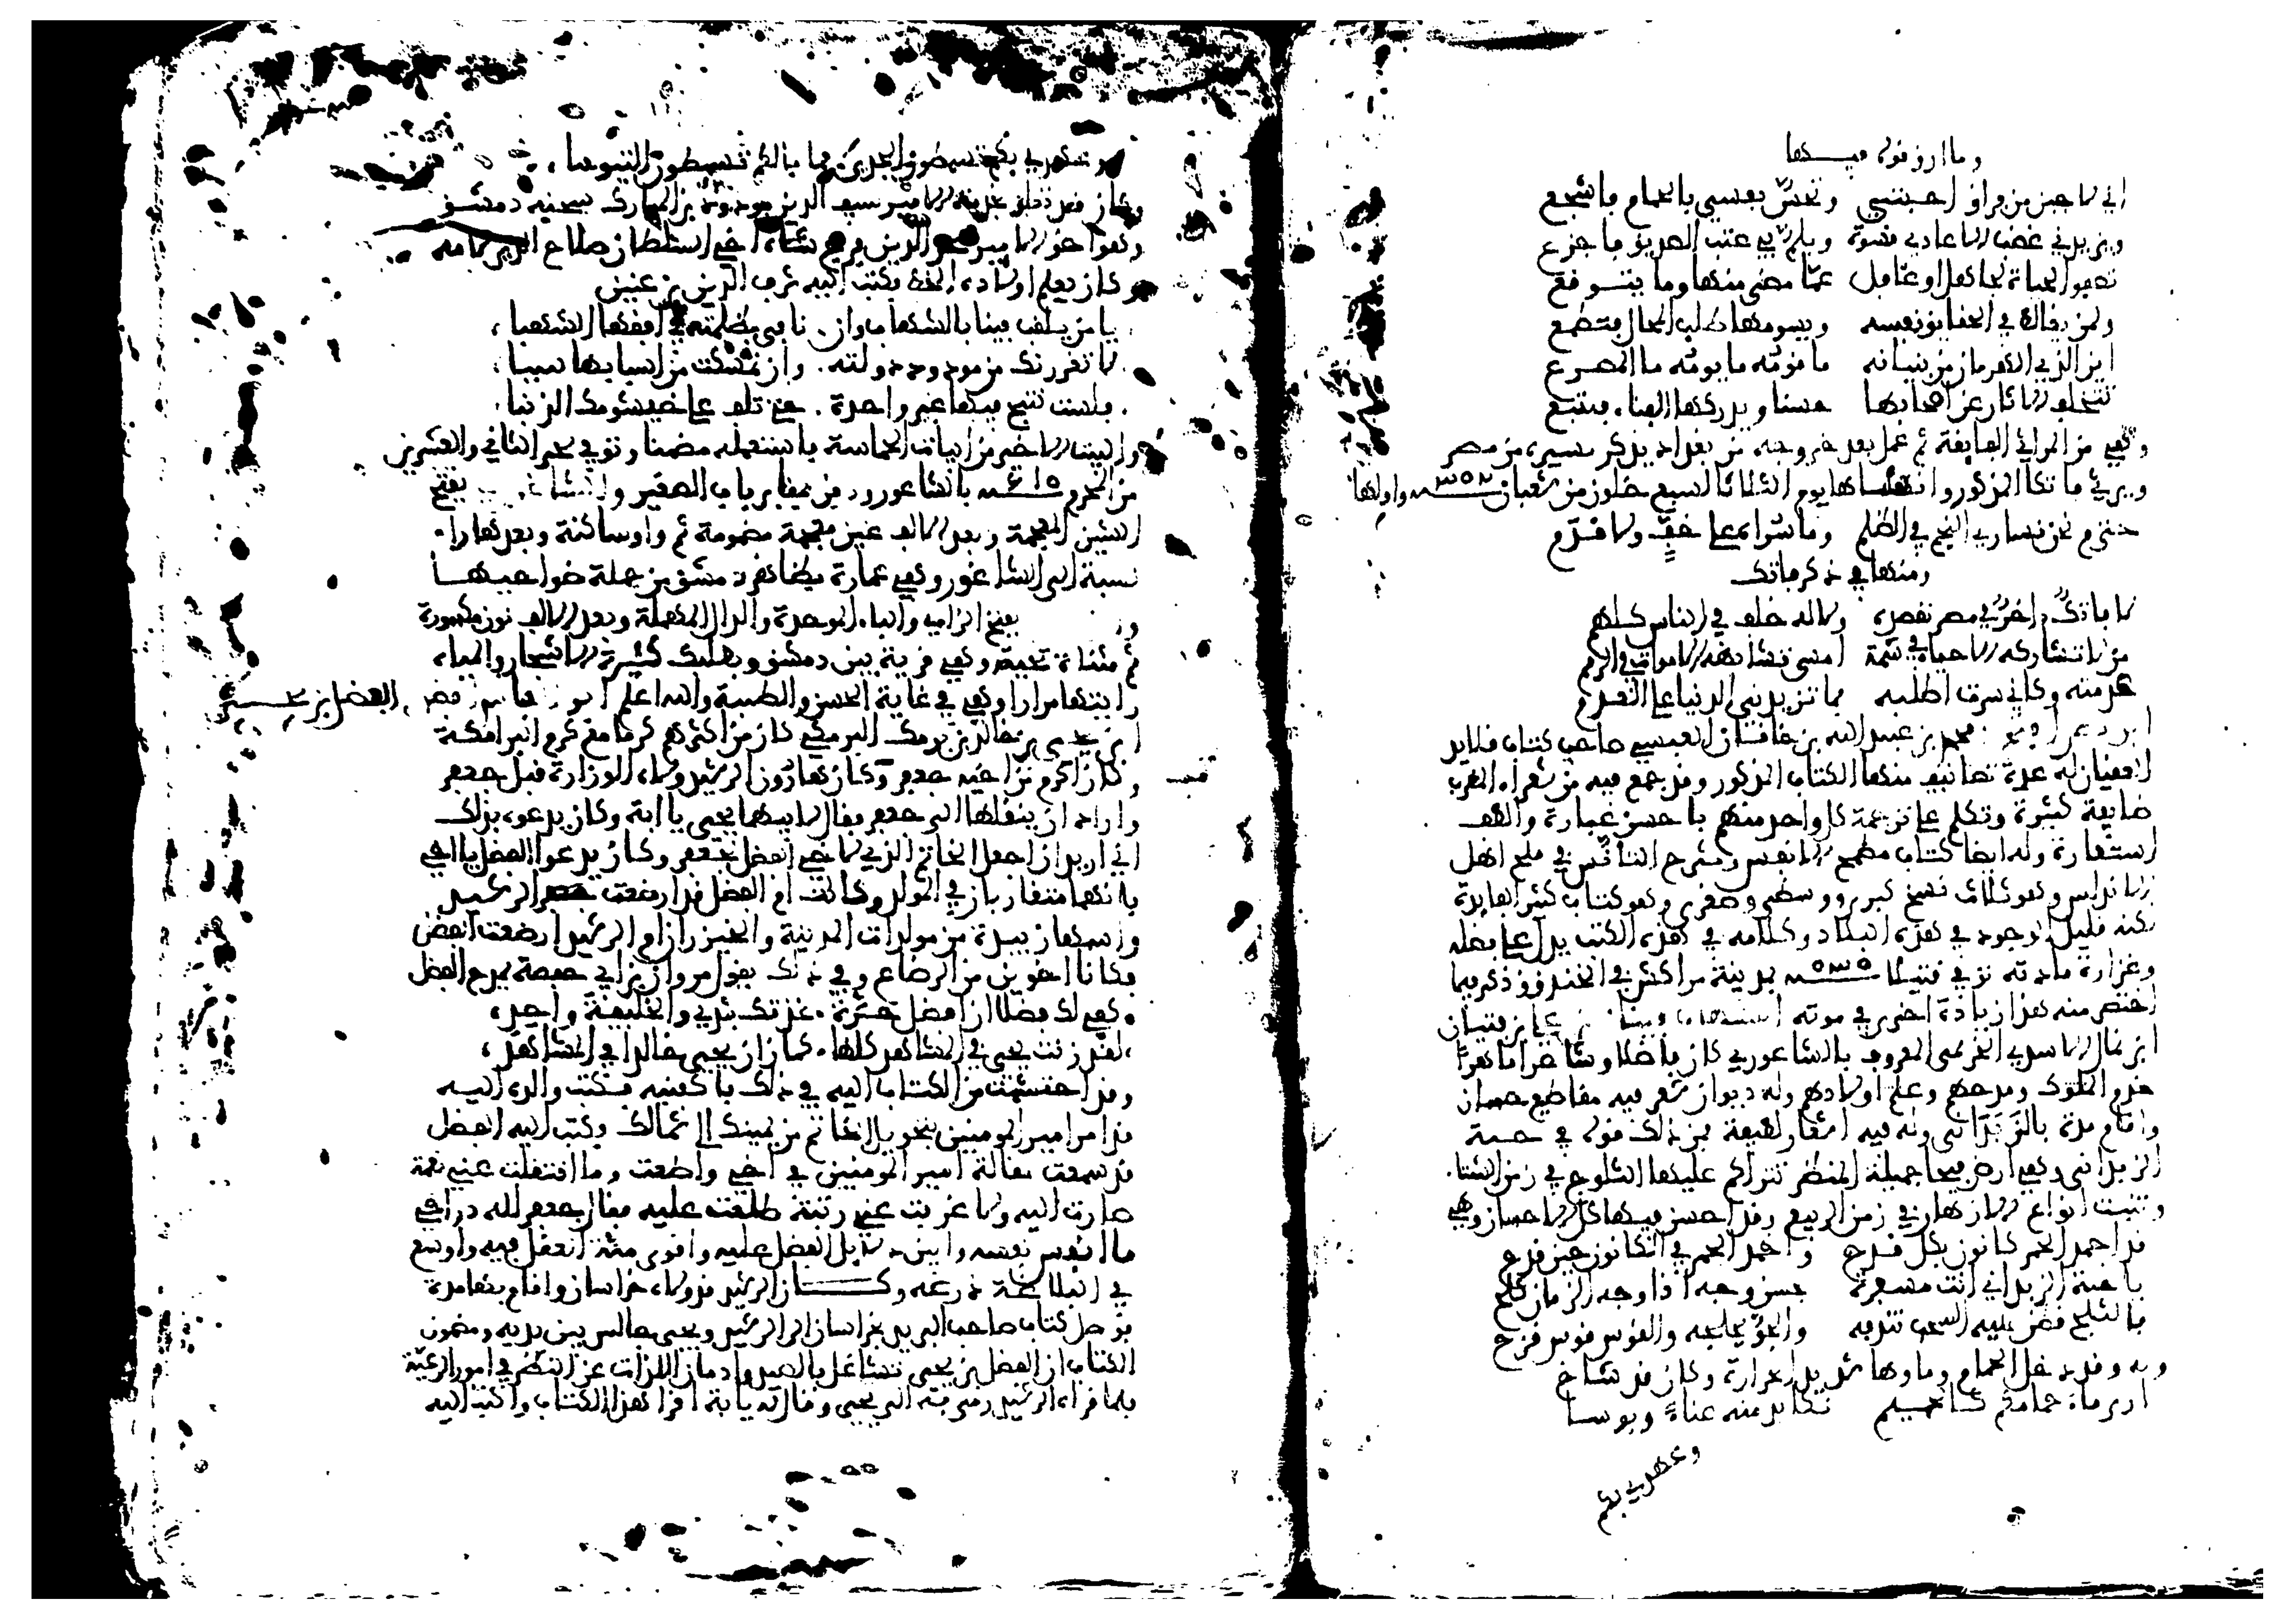 وما ارق قوله فيها
اني لاجبن من فراق احبتي وتحس نفسي بالحمام فاشجع
ويزيدني غضب الاعادي قسوة ويلم بي عتب الصديق فاجزع
تصفو الحياة لجاهل او غافل عما مضى منها وما يتوقع
ولمن يغالط في الحقايق نفسه ويسومها طلب المحال فتطمع
اين الذي الهرمان من بنيانه ما قومه ما يومه ما المصرع
تتخلف الاثار عن اصحابها حينا ويدركها الفناء فتتبع
وهي من المراثي الفايقة ثم عمل بعد خروجه من بغداد يذكر مسيره من مصر
ويرثي فاتكا المذكور وانشاها يوم الثلاثا لسبع خلون من شعبان ٣٥٢ واولها
حتى م نحن نساري النجم في الظلم وما سراه على خف ولا قدم
ومنها في ذكر فاتك
لا فاتك اخر في مصر نقصده ولا له خلف في الناس كلهم
من لا تشابهه الاحياء في شيم امسى تشابهه الاموات في الرمم
عدمته وكاني سرت اطلبه فما تزيدني الدنيا على العدم
محمد بن عبيد الله بن خاقان القيسي صاحب كتاب قلايد
العقيان له عدة تصانيف منها الكتاب المذكور وقد جمع فيه من شعراء المغرب
طايفة كثيرة وتكلم على ترجمة كل واحد منهم باحسن عبارة والطف
استعارة وله ايضا كتاب مطمح الانفس ومسرح التانس في ملح اهل
الاندلس وهو ثلاث نسخ كبرى ووسطى وصغرى وهو كتاب كثير الفايدة
لكنه قليل الوجود في هذه البلاد وكلامه في هذه الكتب يدل على فضله
وغزارة مادته توفي قتيلا ٥٣٥ بمدينة مراكش في الخندق وذكر فيما
اختصر منه هذا زيادة اخرى في موته فتيان بن علي بن فتيان
ابن ثمال الاسدي الخزيمي المعروف بالشاغوري كان فاضلا وشاعرا ماهرا
خدم الملوك ومدحهم وعلم اولادهم وله ديوان شعر فيه مقاطيع حسان
واقام مدة بالزبداني وله فيه اشعار لطيفة فمن ذلك قوله في جنة
الزبداني وهي ارض فيحا جميلة المنظر تتراكم عليها الثلوج في زمن الشتا
وتنبت انواع الازهار في زمن الربيع ولقد احسن فيها كل الاحسان وهي
قد اجمد الخمر كانون بكل قدح واخمد الجمر في الكانون حين قدح
يا جنة الزبداني انت مسفرة بحسن وجه اذا وجه الزمان كلح
فالثلج قطن عليه السحب تندفه والجو يحلجه والقوس قوس قزح
وله وقد دخل الحمام وماوها شديد الحرارة وكان قد شاخ
ارى ماء حمامكم كالحميم نكابد منه عناء وبوسا
وعهدي بكم
وعهدي بكم تسمطون الجدي فما بالكم تسمطون التيوسا
وكان قد تعلق بخدمة الامير سيف الدين مودود بن المبارك شحنة دمشق
وهو اخو الامير عز الدين فرخ شاه اخي السلطان صلاح الدين لامه
وكان يعلم اولاده الخط فكتب اليه شرف الدين بن عنين
يا من يلقب فينا بالشهاب وان نافى بظلمته في افقها الشهبا
لا تغررنك من مودود دولته وان تمسكت من اسبابها سببا
فلست تنبح فيها غير واحدة حتى تلف على خيشومك الذنبا
والبيت الاخير من ابيات الحماسة فاستعمله مضمنا وتوفي سحر الثاني والعشرين
من المحرم ٦١٥ بالشاغور ودفن بمقابر باب الصغير والشاغوري بفتح
الشين المعجمة وبعد الالف غين معجمة مضمومة ثم واو ساكنة وبعدها را
نسبة الى الشاغور وهي عمارة بظاهر دمشق من جملة ضواحيها
بفتح الزاي والباء الموحدة والدال المهملة وبعد الالف نون مكسورة
ثم مثناة تحتية وهي قرية بين دمشق وبعلبك كثيرة الاشجار والمياه
رايتها مرارا وهي في غاية الحسن والطيبة والله اعلم الفضل بن يحيى
ابن خالد بن برمك البرمكي كان من اكثرهم كرما مع كرم البرامكة
وكان اكرم من اخيه جعفر وكان هارون الرشيد ولاه الوزارة قبل جعفر
واراد ان ينقلها الى جعفر فقال لابيهما يحيى يا ابة وكان يدعوه بذلك
اني اريد ان اجعل الخاتم الذي لاخي الفضل لجعفر وكان يدعو الفضل يا اخي
فانهما متقاربان في المولد وكانت ام الفضل قد ارضعت الرشيد
واسمها زبيدة من مولدات المدينة والخيزران ام الرشيد ارضعت الفضل
فكانا اخوين من الرضاع وفي ذلك يقول مروان بن ابي حفصة يمدح الفضل
كفى لك فضلا ان افضل حرة غذتك بثدي والخليفة واحد
لقد زنت يحيى في المشاهد كلها كما زان يحيى خالدا في المشاهد
وقد احتشمت من الكتاب اليه في ذلك فاكفنيه فكتب والده اليه
قد امر امير المومنين بتحويل الخاتم من يمينك الى شمالك فكتب اليه الفضل
قد سمعت مقالة امير المومنين في اخي واطعت وما انتقلت عني نعمة
صارت اليه ولا غربت عني رتبة طلعت عليه فقال جعفر لله در اخي
ما انفس نفسه وابين دلايل الفضل عليه واقوى منة العقل فيه واوسع
في البلاغة ذرعه وكان الرشيد قد ولاه خراسان واقام بها مدة
فوصل كتاب صاحب البريد بخراسان الى الرشيد ويحيى جالس بين يديه ومضمون
الكتاب ان الفضل بن يحيى تشاغل بالصيد وادمان اللذات عن النظر في امور الرعية
فلما قراه الرشيد رمى به الى يحيى وقال له يا ابة اقرا هذا الكتاب واكتب اليه